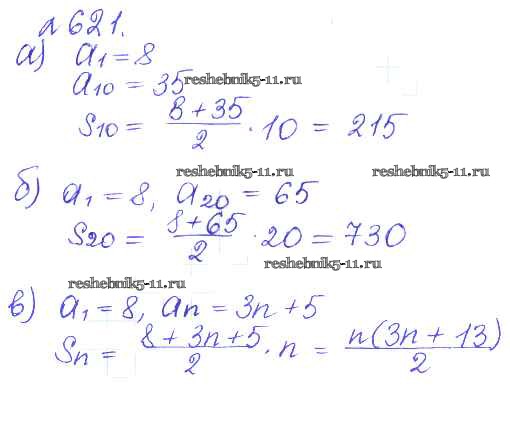 л 621.
а) a₁ = 8
a₁₀ = 35 reshebnik5-11.ru
S₁₀ = (8 + 35)/2 · 10 = 215
reshebnik5-11.ru reshebnik5-11.ru
б) a₁ = 8, a₂₀ = 65
S₂₀ = (8 + 65)/2 · 20 = 730
reshebnik5-11.ru
reshebnik5-11.ru
в) a₁ = 8, aₙ = 3n + 5
Sₙ = (8 + 3n + 5)/2 · n = n(3n + 13)/2